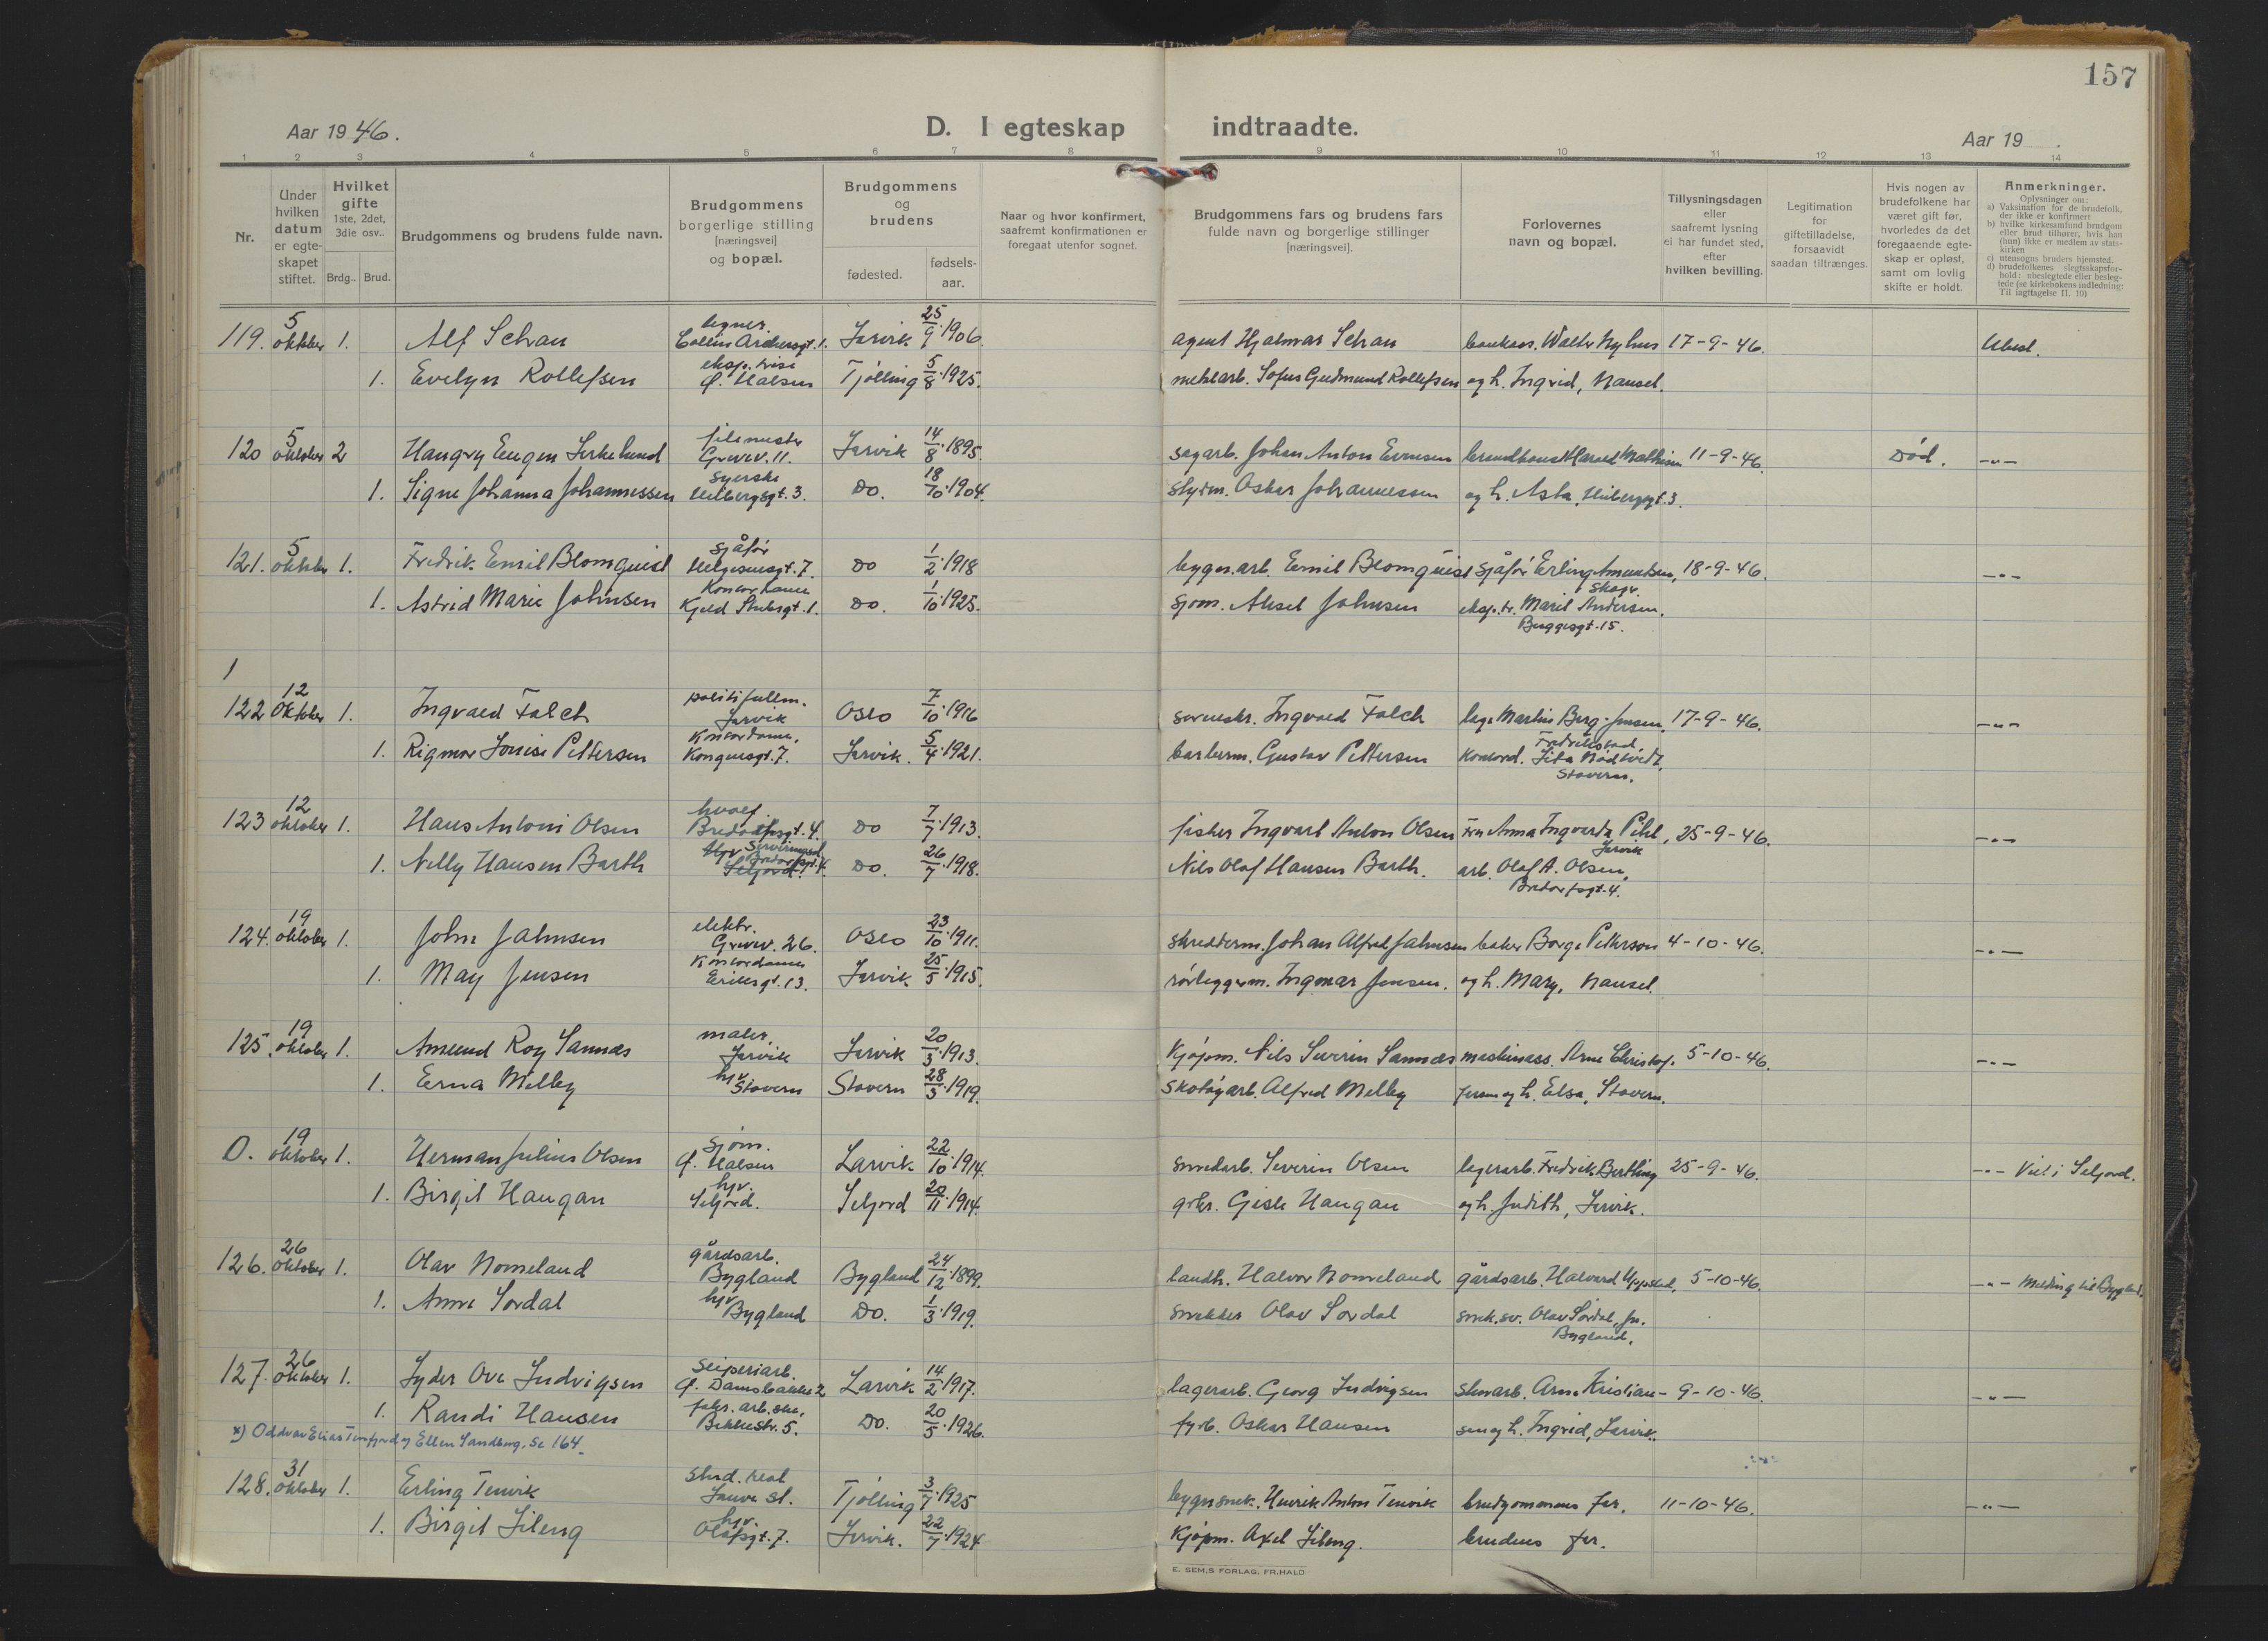 157
Aar 1946. D. I egteskap indtraadte. Aar 19 .
1 2 3 4 5 6 7 8 9 10 11 12 13 14
Nr.
Under hvilken datum er egte-skapet stiftet.
Hvilket gifte 1ste, 2det, 3die osv.. Brdg.. Brud.
Brudgommens og brudens fulde navn.
Brudgommens borgerlige stilling [næringsvei] og bopæl.
Brudgommens og brudens fødested. fødsels-aar.
Naar og hvor konfirmert, saafremt konfirmationen er foregaat utenfor sognet.
Brudgommens fars og brudens fars fulde navn og borgerlige stillinger [næringsvei].
Forlovernes navn og bopæl.
Tillysningsdagen eller saafremt lysning ei har fundet sted, efter hvilken bevilling.
Legitimation for giftetilladelse, forsaavidt saadan tiltrænges.
Hvis nogen av brudefolkene har været gift før, hvorledes da det foregaaende egte-skap er opløst, samt om lovlig skifte er holdt.
Anmerkninger.
Oplysninger om:
a) Vaksination for de brudefolk, der ikke er konfirmert
b) hvilke kirkesamfund brudgom eller brud tilhører, hvis han (hun) ikke er medlem av stats-kirken
c) utensogns bruders hjemsted.
d) brudefolkenes slegtsskapsfor-hold: ubeslegtede eller besleg-tede (se kirkebokens indledning: Til iagttagelse II. 10)
119. 5 oktober 1. Alf Schau Collin Archersgt. 1. Larvik 25/9.1906. agent Hjalmar Schau Walter Nyhus 17-9-46. Ubesl.
1. Evelyn Rollefsen eksp.trise Ø. Halsen Tjølling 5/8.1925. Sofus Gudmund Rollefsen og h. Ingrid, Nansel.
120 5 oktober 2 Eugen Lirkelund Grevev. 11. Larvik 14/8.1895. sagarb. Johan Anton Evensen 11-9-46. Død. -"-
1. Signe Johanna Johannessen syerske Heibergsgt. 3. Do. 18/10.1904. styrm. Oskar Johannessen og h. Asta, Heibergsgt. 3.
121. 5 oktober 1. Fredrik Emil Blomquist sjåfør Helgesensgt. 7. Do 1/2.1918 bygn.arb. Emil Blomquist sjåfør Erling Amundsen, 18-9-46. -"-
1. Astrid Marie Johnsen Kontordame Kjeld Stubsgt. 1. Do. 1/10.1925. sjøm. Aksel Johnsen eksp.tr. Marit Andersen,
Buggesgt. 15.
1
122 12 Oktober 1. Ingvald Falch politifullm. Larvik Oslo 7/10.1916 Ingvald Falch Martin Berg-Jensen, 17-9-46. -"-
Fredrikstad
1. Rigmor Louise Pettersen Kontordame, Kongensgt. 7. Larvik. 5/4.1921. barberm. Gustav Pettersen Kontord. Nødtvedt,
Stavern.
123 12 oktober 1. Hans Antoni Olsen hvalf. Bredochsgt. 4. Do 7/7.1913. fisker Ingvart Anton Olsen Fru Anna Ingvarda Pihl, 25-9-46. -"-
Larvik
1. Nelly Hansen Barth Do. 26/7.1918. Nils Olaf Hansen Barth. arb. Olaf A. Olsen,
124. 19 oktober 1. John Jahnsen elektr. Grevev. 26. Oslo 23/10.1911. skredderm. Johan Alfred Jahnsen baker Borge Petterson 4-10-46. -"-
1. May Jensen Kontordame Eriksgt. 13. Larvik 25/5.1915. rørleggerm. Ingmar Jensen. og h. Mary, Nansel.
125. 19 oktober 1. Amund Roy Sannæs maler, Larvik Larvik 20/3.1913. Kjøpm. Nils Severin Sannæs maskinass. Arne Christof- 5-10-46. -"-
1. Erna Melby hjv. Stavern Stavern 28/3.1919. Skotøyarb. Alfred Melby fersen og h. Elsa, Stavern.
0. 19 oktober 1. Herman Julius Olsen sjøm. Ø. Halsen Larvik 22/10.1914. smedarb. Severin Olsen lagerarb. Fredrik Bertling 25-9-46. -"- Viet i Seljord.
1. Birgit Haugan hjv. Seljord. Seljord 20/11.1914. grbr. Gisle Haugan og h. Judith, Larvik.
126. 26 oktober 1. Olav Nomeland gårdsarb. Bygland Bygland 24/12.1899. landh. Halvor Nomeland gårdsarb. Halvard 5-10-46. -"- Melding til Bygland.
1. Anne Sordal hjv. Bygland Do. 1/3.1919. snekker Olav Sordal snek.sv. Olav Sordal, jr.
Bygland.
127. 26 oktober 1. Lyder Ove Ludvigsen Ø. Damsbakken 2 Larvik 14/2.1917. lagerarb. Georg Ludvigsen skoarb. Arne Kristian- 9-10-46. -"-
1. Randi Hansen fabr. arb.ske, Bekkestr. 5. Do. 20/5.1926. fyrb. Oskar Hansen sen og h. Ingrid, Larvik.
x) Oddvar Elias og Ellen Sandberg. Se 164.
128. 31 oktober 1. Erling Tenvik Lauve st. Tjølling 3/7.1925 bygn.snek. Henrik Anton Tenvik brudgommens far. 11-10-46. -"-
1. Birgit Lileng hjv. Olafsgt. 7. Larvik. 22/7.1924 Kjøpm. Axel Lileng. brudens far.
E. SEM.S FORLAG, FR.HALD